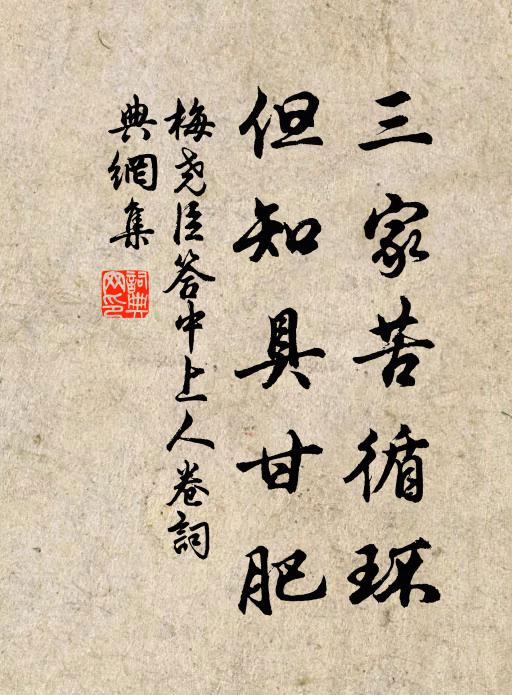 三家苦循环
但知具甘肥
梅尧臣答中上人卷詞
典網集
詞典
网印